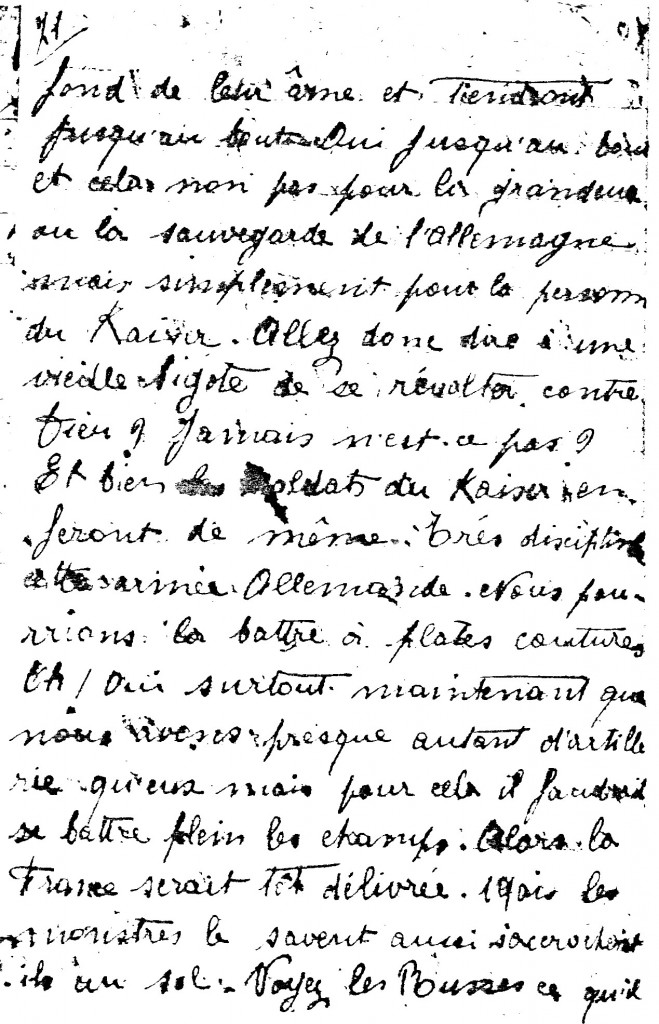 71
fond de leur âme et tiendront
jusqu'au bout. Oui jusqu'au bout
et cela non pas pour la grandeur
ou la sauvegarde de l'allemagne
mais simplement pour la personn
du Kaiser. Allez donc dire à une
vieille bigote de se révolter contre
Dieu ? Jamais n'est-ce pas ?
Et bien les soldats du Kaiser en
feront de même. Très discipliné
cette armée Allemande. Nous pou-
rrions la battre à plates coutures
Oh ! Oui surtout maintenant que
nous avons presque autant d'artille
rie qu'eux mais pour cela il faudrait
se battre plein les champs. Alors la
France serait tôt délivrée. Mais les
monstres le savent aussi s'accrochent
ils au sol. Voyez les Russes ce qu'il